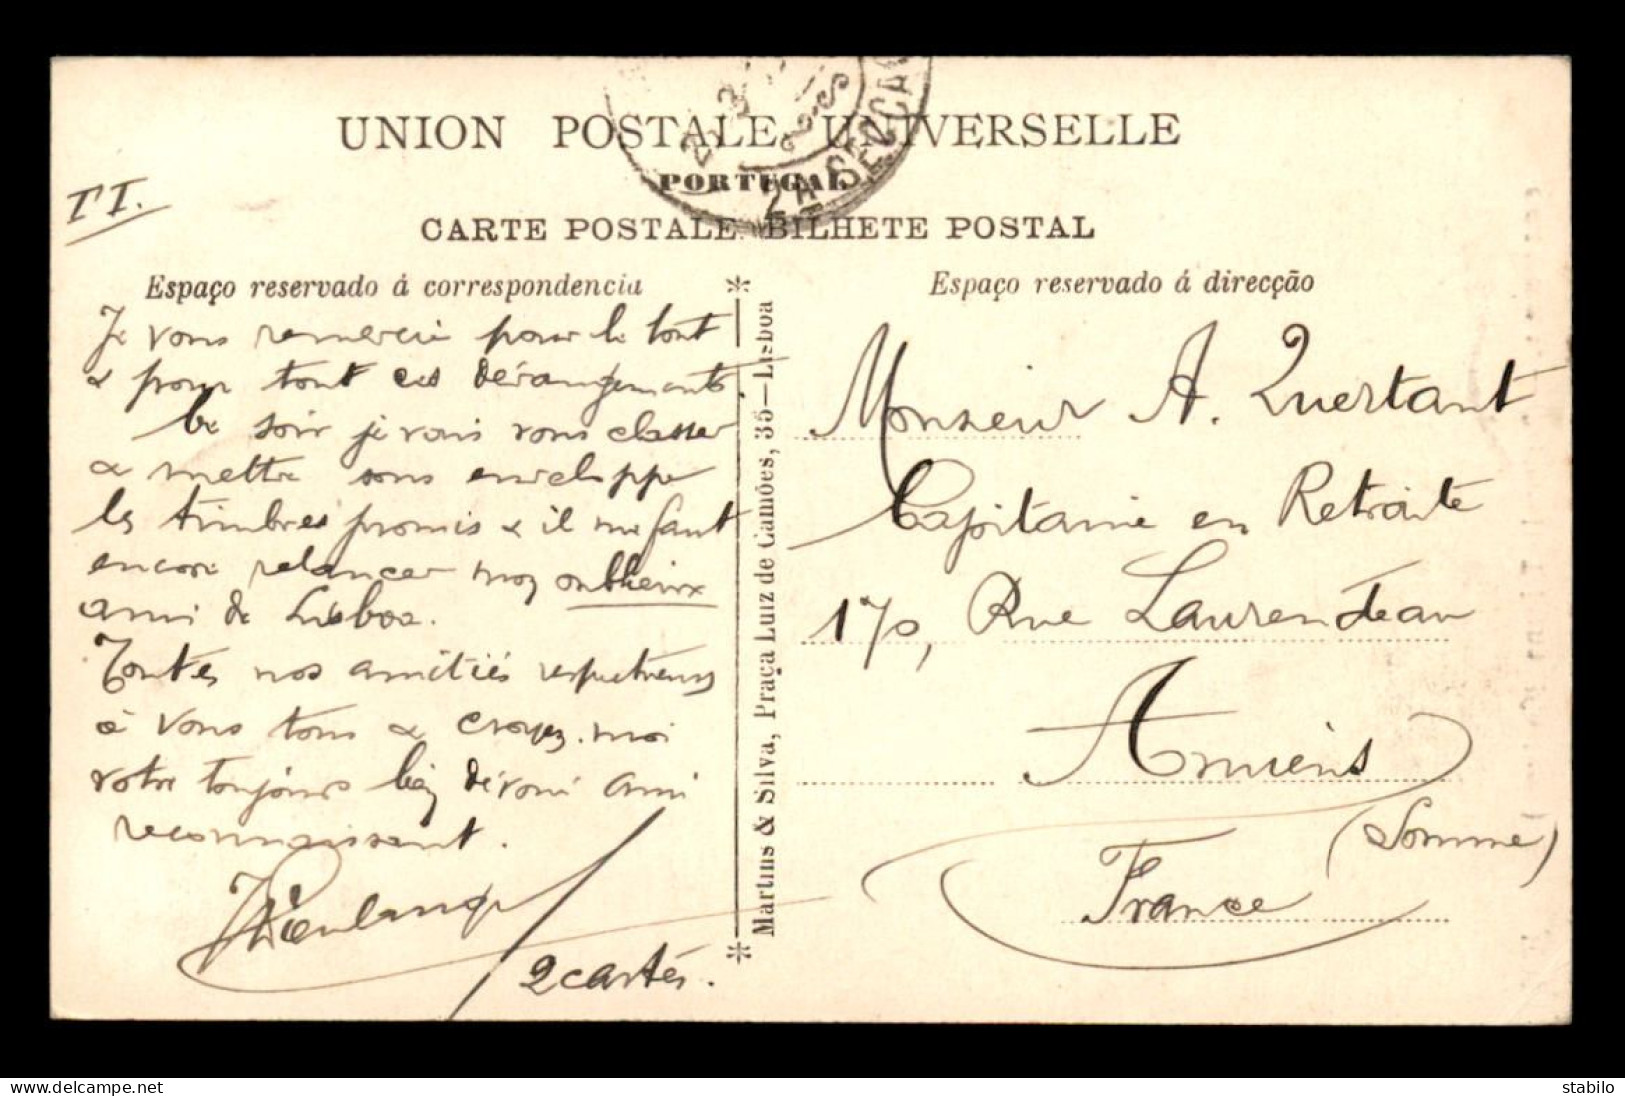 UNION POSTALE UNIVERSELLE
PORTUGAL
2ª SECCA
CARTE POSTALE. BILHETE POSTAL
II.
Espaço reservado á correspondencia
Je vous remercie pour le tout
& pour tout ces dérangements
Ce soir je vais vous classer
& mettre sous enveloppe
les timbres promis & il me faut
encore relancer mon oublieux
ami de Lisboa.
Toutes nos amitiés respectueuses
à vous tous & croyez-moi
votre toujours bien dévoué ami
reconnaissant.
2 cartes.
Martins & Silva, Praça Luiz de Camões, 35—Lisboa
Espaço reservado á direcção
Monsieur A. Quertant
Capitaine en Retraite
170, Rue Laurendeau
Amiens
(Somme)
France
www.delcampe.net
stabilo